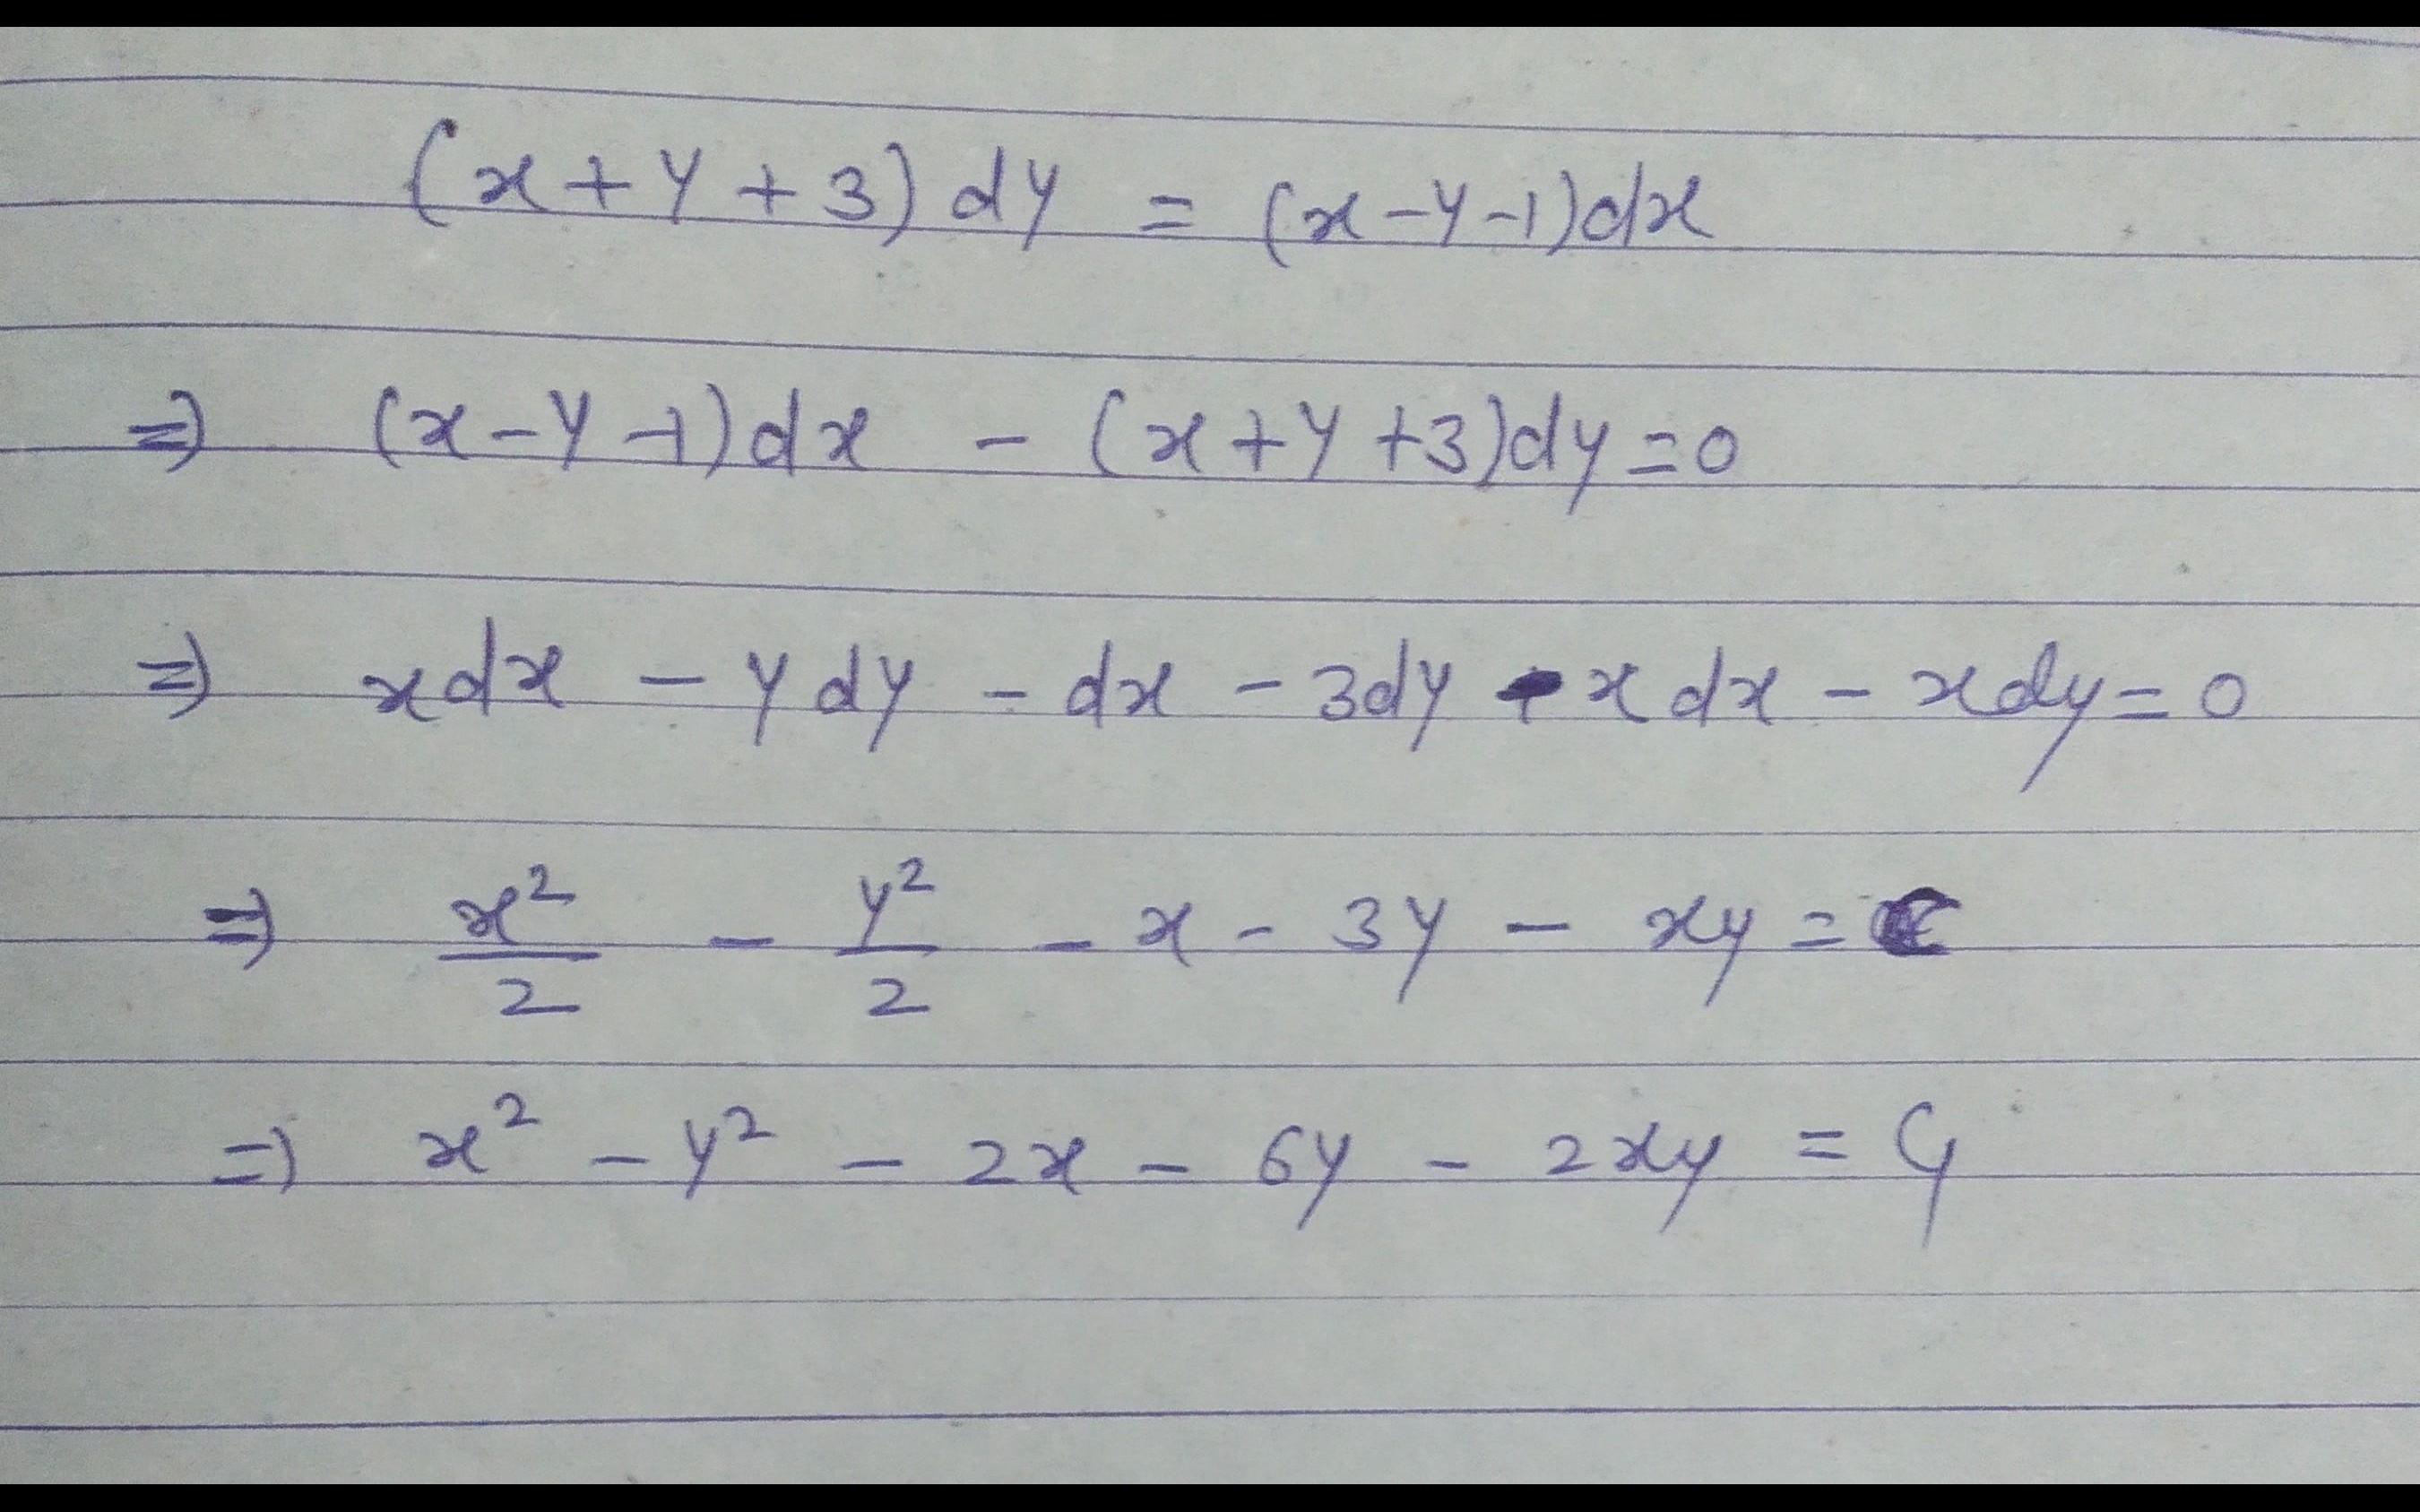 (x+y+3)dy = (x-y-1)dx
⇒ (x-y-1)dx - (x+y+3)dy=0
⇒ xdx - ydy - dx - 3dy - xdx - xdy=0
⇒ x²/2 - y²/2 - x - 3y - xy = C
⇒ x² - y² - 2x - 6y - 2xy = C₁